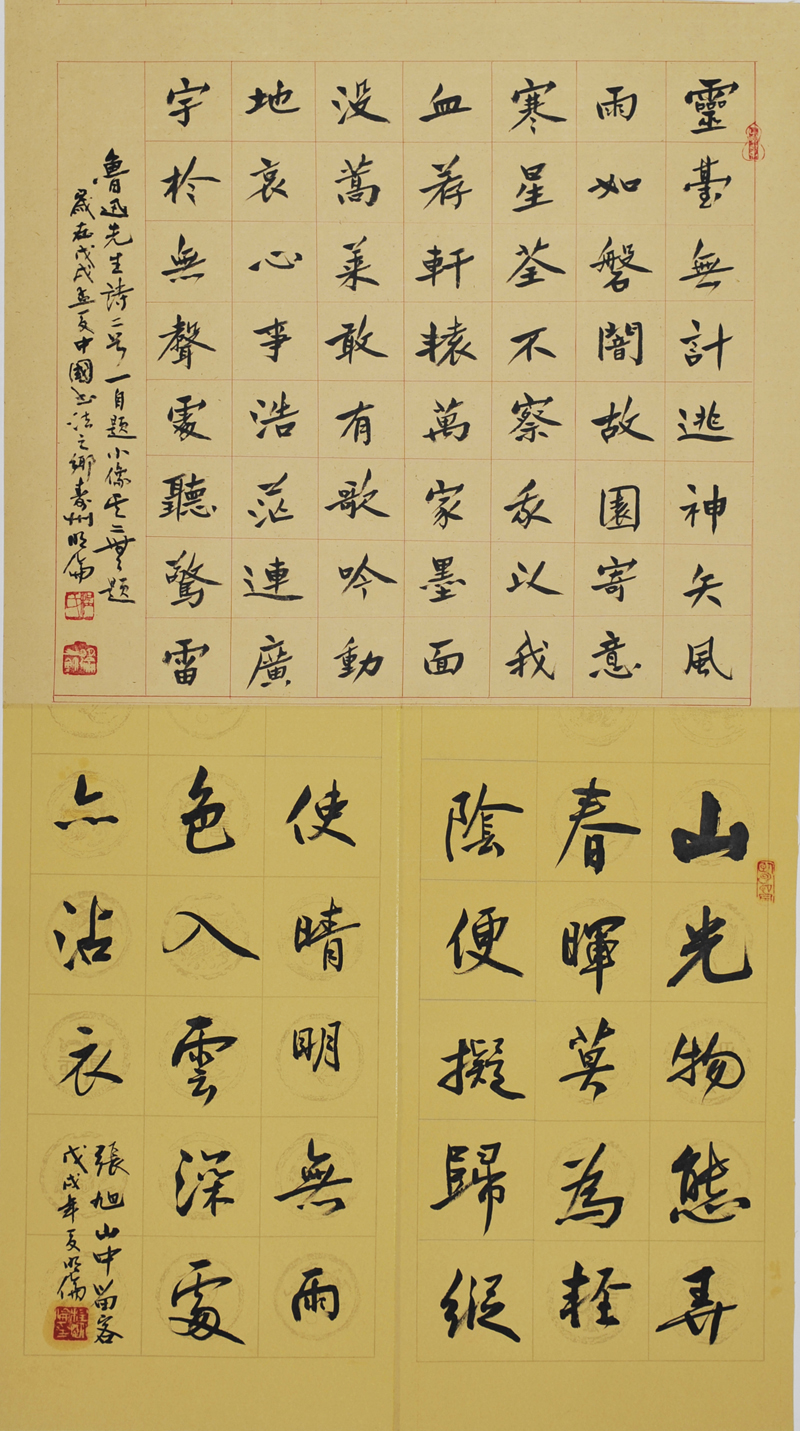 靈臺無計逃神矢風
雨如磐闇故園寄意
寒星荃不察我以我
血荐軒轅萬家墨面
没蒿萊敢有歌吟動
地哀心事浩茫連廣
宇於無聲處聽驚雷
魯迅先生詩二首一自題小像其二無題
歲在戊戌孟夏中國書法之鄉壽州明倫
山光物態弄
春暉莫為輕
陰便擬歸縱
使晴明無雨
色入雲深處
亦沾衣
張旭山中留客
戊戌年夏明倫